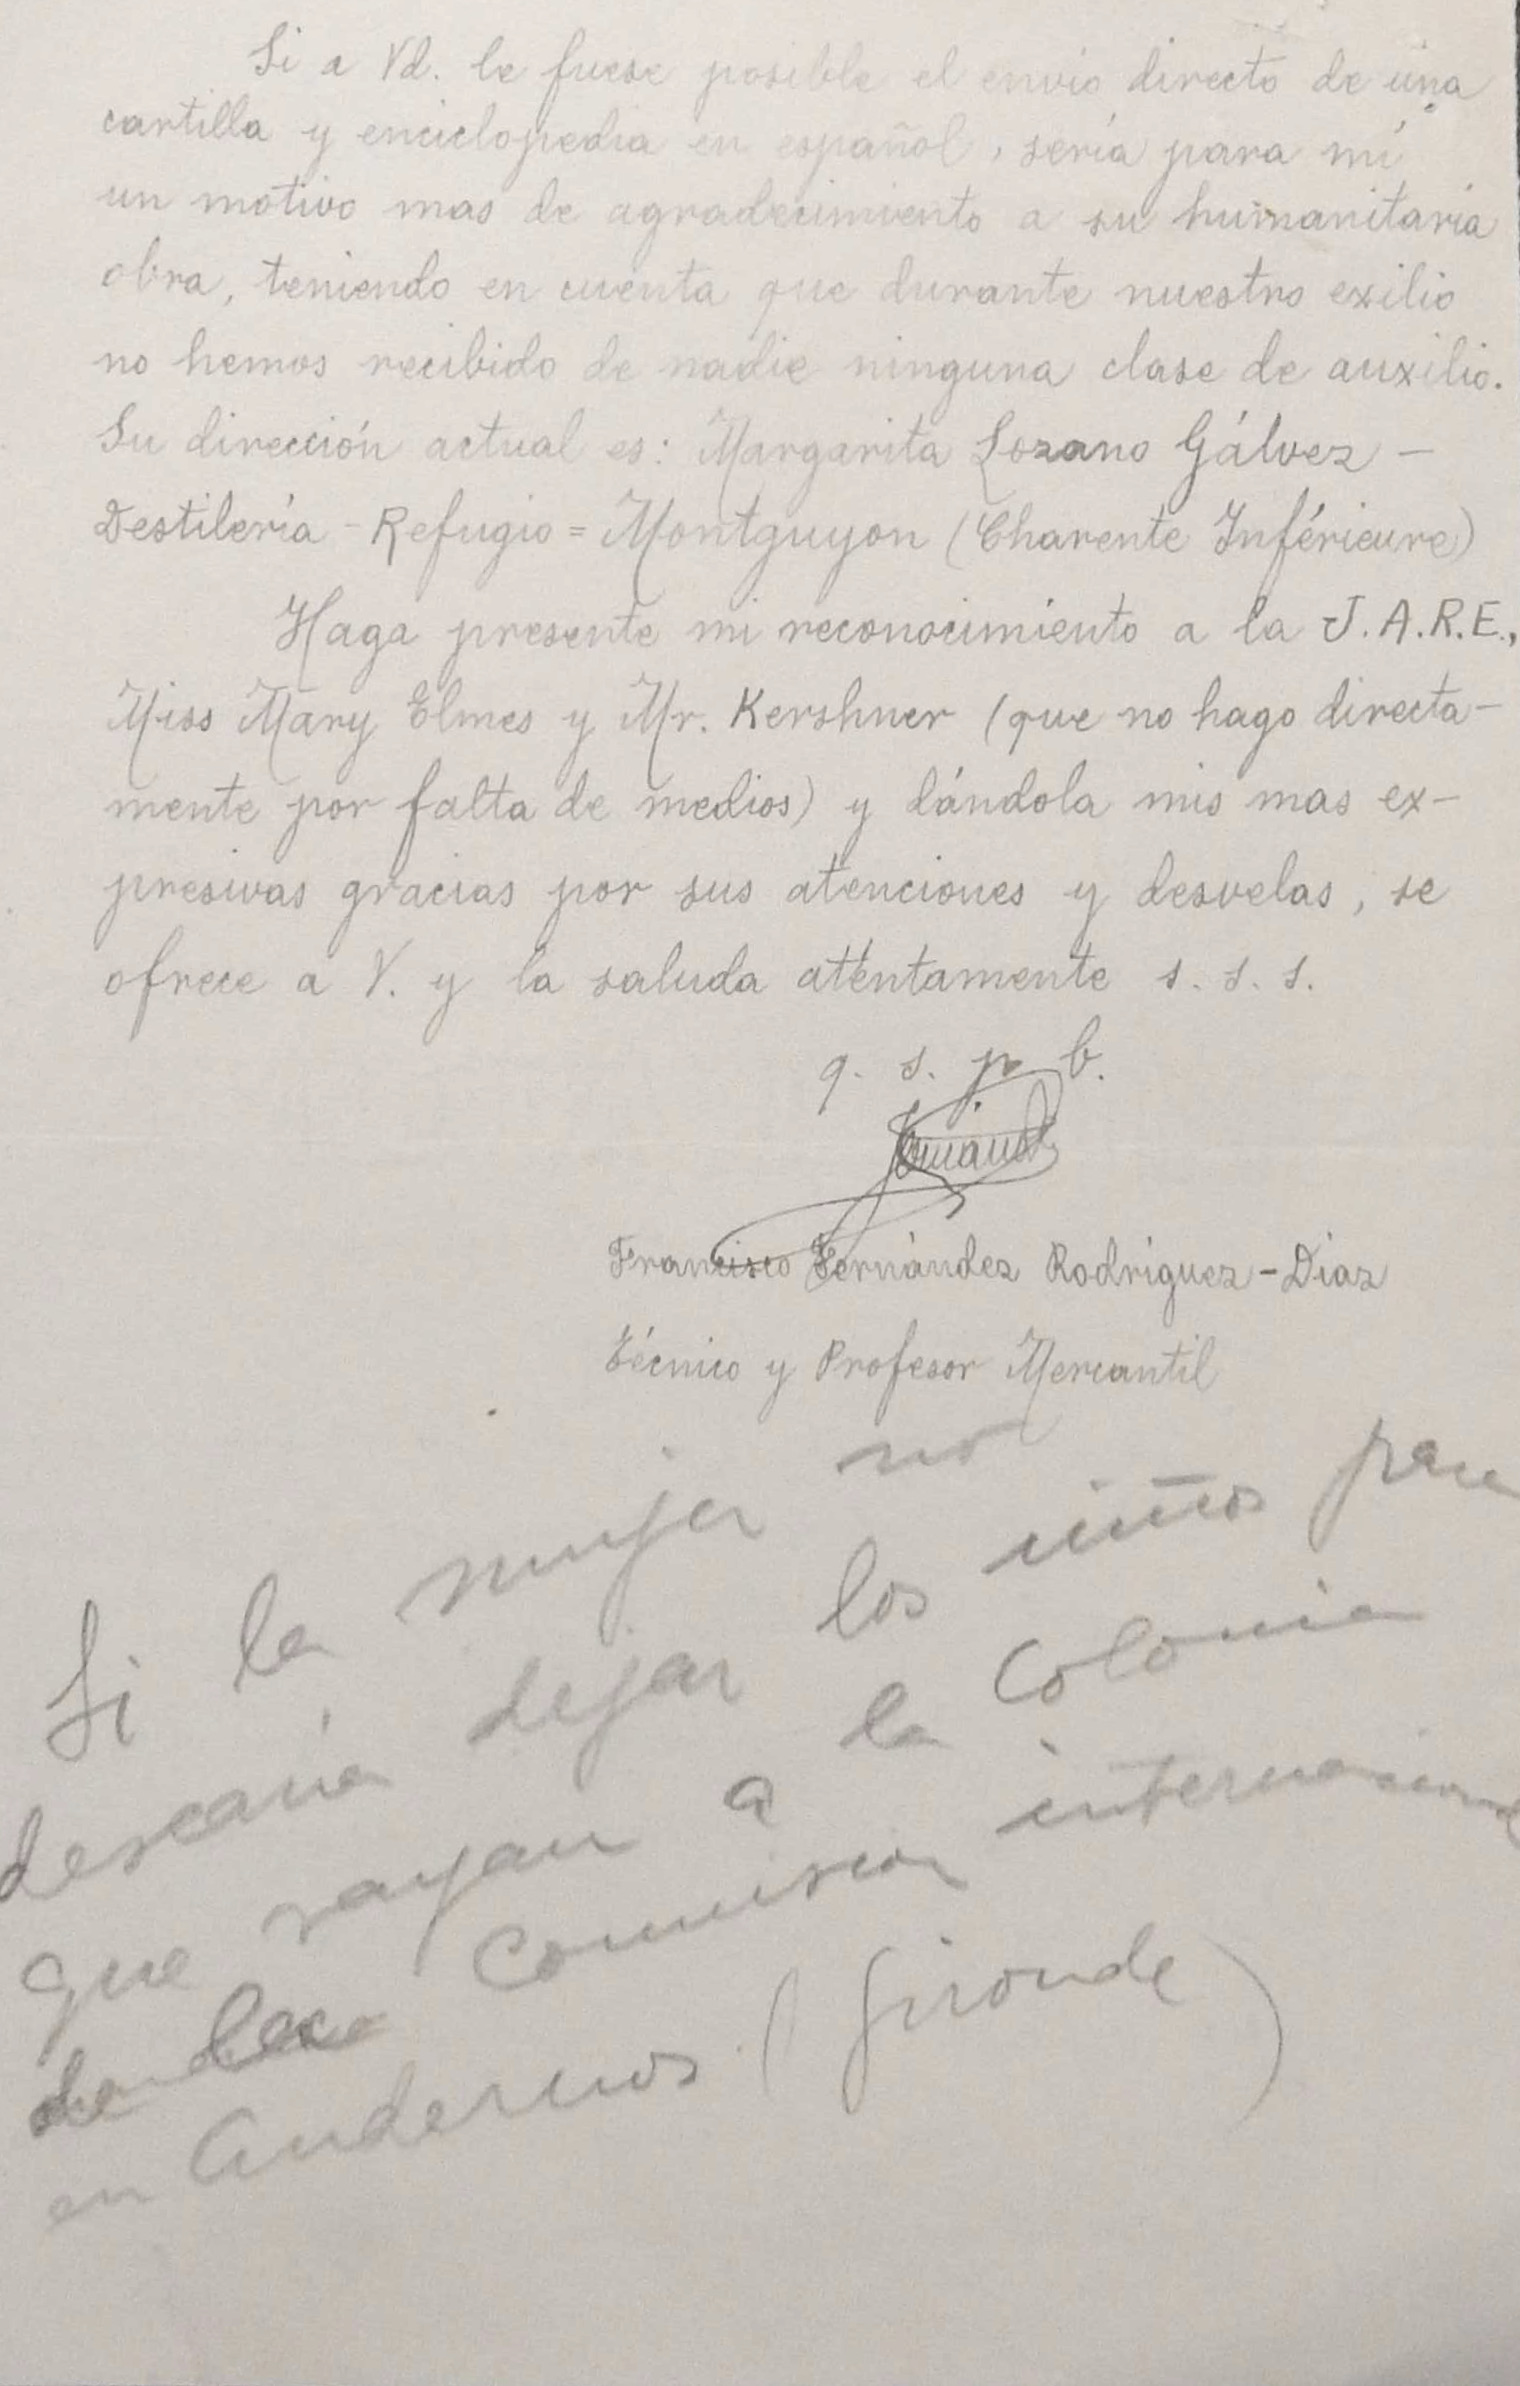 Si a Vd. le fuese posible el envio directo de una
cartilla y enciclopedia en español, sería para mí
un motivo mas de agradecimiento a su humanitaria
obra, teniendo en cuenta que durante nuestro exilio
no hemos recibido de nadie ninguna clase de auxilio.
Su dirección actual es: Margarita Lozano Gálvez -
Destilería - Refugio = Montguyon (Charente Inférieure)
Haga presente mi reconocimiento a la J.A.R.E.,
Miss Mary Elmes y Mr. Kershner (que no hago directa-
mente por falta de medios) y dándola mis mas ex-
presivas gracias por sus atenciones y desvelas, se
ofrece a V. y la saluda atentamente s. s. s.
q. s. p. b.
Francisco Fernández Rodríguez-Díaz
Técnico y Profesor Mercantil
Si la mujer no
desearía dejar los niños para
que vayan a la Colonia
de la Comision internacional
en Andernos (Gironde)